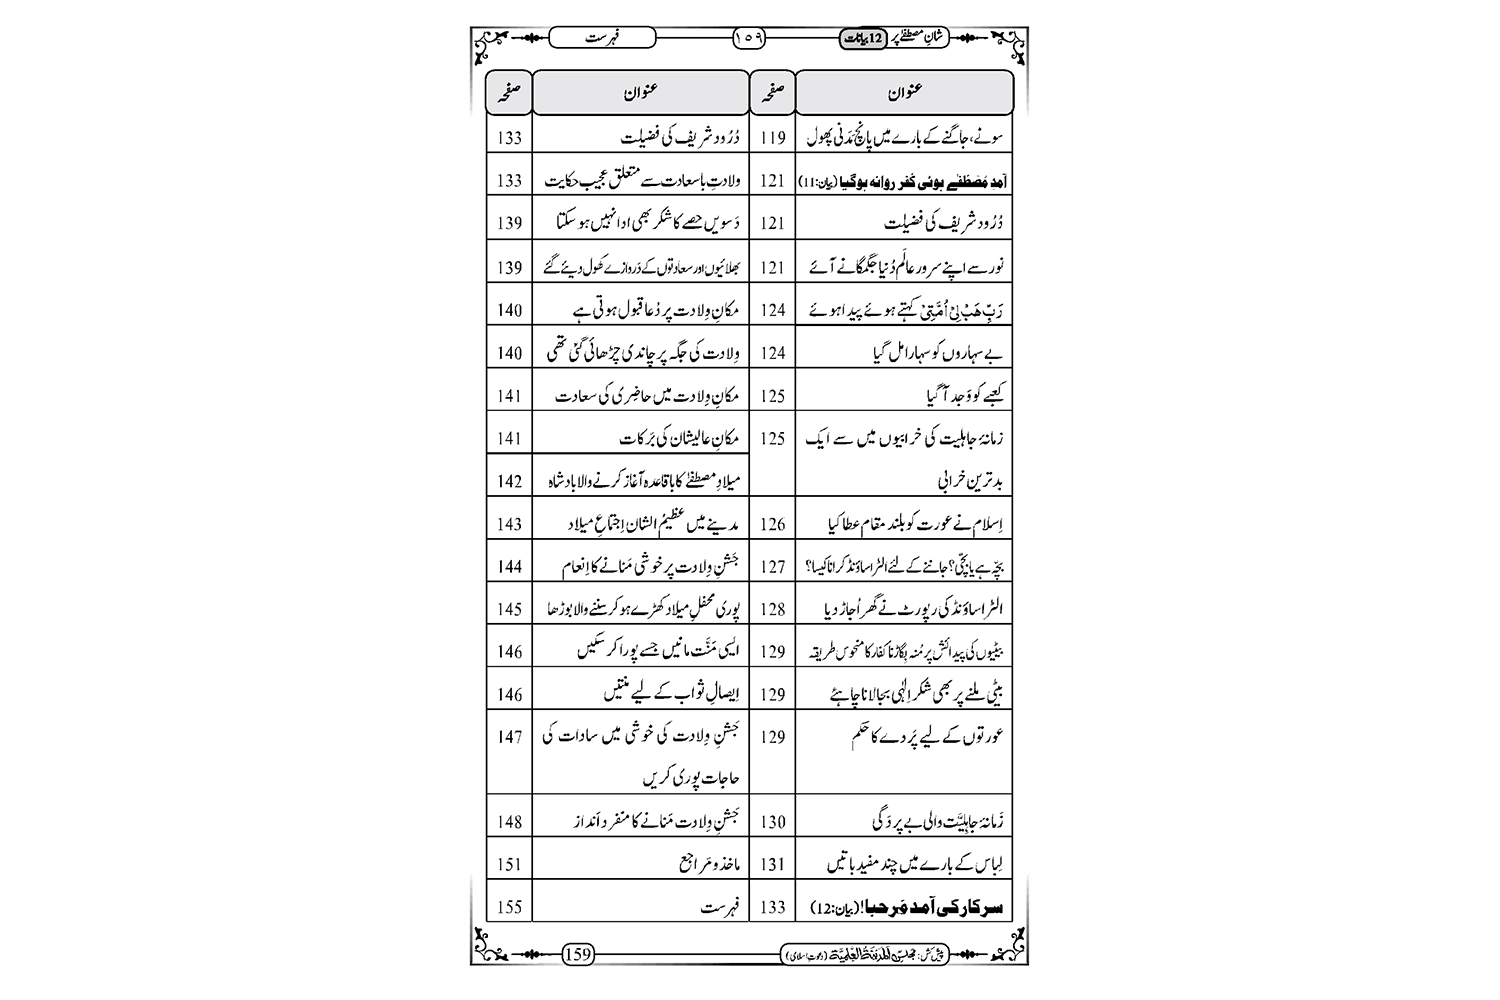 شانِ مصطفےٰ پر 12 بیانات ۱۵۹ فہرست
عنوان صفحہ عنوان صفحہ
سونے، جاگنے کے بارے میں پانچ مَدَنی پھول 119 دُرُود شریف کی فضیلت 133
آمدِ مَصْطَفٰے ہوئی کُفر روانہ ہوگیا (بیان:11) 121 وِلادتِ باسعادت سے متعلق عجیب حکایت 133
دُرُود شریف کی فضیلت 121 دَسویں حصے کا شکر بھی ادا نہیں ہو سکتا 139
نور سے اپنے سرورِ عالَم دُنیا جگمگانے آئے 121 بھلائیوں اور سعادتوں کے دَروازے کھول دیئے گئے 139
رَبِّ ھَبْ لِیْ اُمَّتِیْ کہتے ہوئے پیدا ہوئے 124 مکانِ وِلادت پر دُعا قبول ہوتی ہے 140
بے سہاروں کو سہارا مل گیا 124 وِلادت کی جگہ پر چاندی چڑھائی گئی تھی 140
کعبے کو وَجد آ گیا 125 مکانِ وِلادت میں حاضِری کی سعادت 141
زمانۂ جاہلیت کی خرابیوں میں سے ایک 125 مکانِ عالیشان کی بَرَکات 141
بدترین خرابی میلادِ مصطفےٰ کا باقاعدہ آغاز کرنے والا بادشاہ 142
اِسلام نے عورت کو بلند مقام عطا کیا 126 مدینے میں عظیمُ الشان اِجتماعِ میلاد 143
بچّہ ہے یا بچّی؟ جاننے کے لئے الٹراساؤنڈ کرانا کیسا؟ 127 جَشنِ وِلادت پر خوشی مَنانے کا اِنعام 144
الٹراساؤنڈ کی رپورٹ نے گھر اُجاڑ دیا 128 پوری محفلِ میلاد کھڑے ہو کر سننے والا بوڑھا 145
بیٹیوں کی پیدائش پر مُنہ بِگاڑنا کفار کا منحوس طریقہ 129 ایسی مَنَّت مانیں جسے پورا کر سکیں 146
بیٹی ملنے پر بھی شکرِ اِلٰہی بجا لانا چاہئے 129 اِیصالِ ثواب کے لیے منتیں 146
عورتوں کے لیے پَردے کا حکم 129 جَشنِ وِلادت کی خوشی میں سادات کی 147
حاجات پوری کریں
زَمانۂ جاہِلِیَّت والی بے پردَگی 130 جَشنِ وِلادت مَنانے کا منفرد اَنداز 148
لِباس کے بارے میں چند مفید باتیں 131 ماخذ و مَراجع 151
سرکار کی آمد مَرحبا! (بیان:12) 133 فہرست 155
پیش کش: مجلس اَلْمَدِیْنَۃُ الْعِلْمِیَّۃ (دعوتِ اسلامی) 159